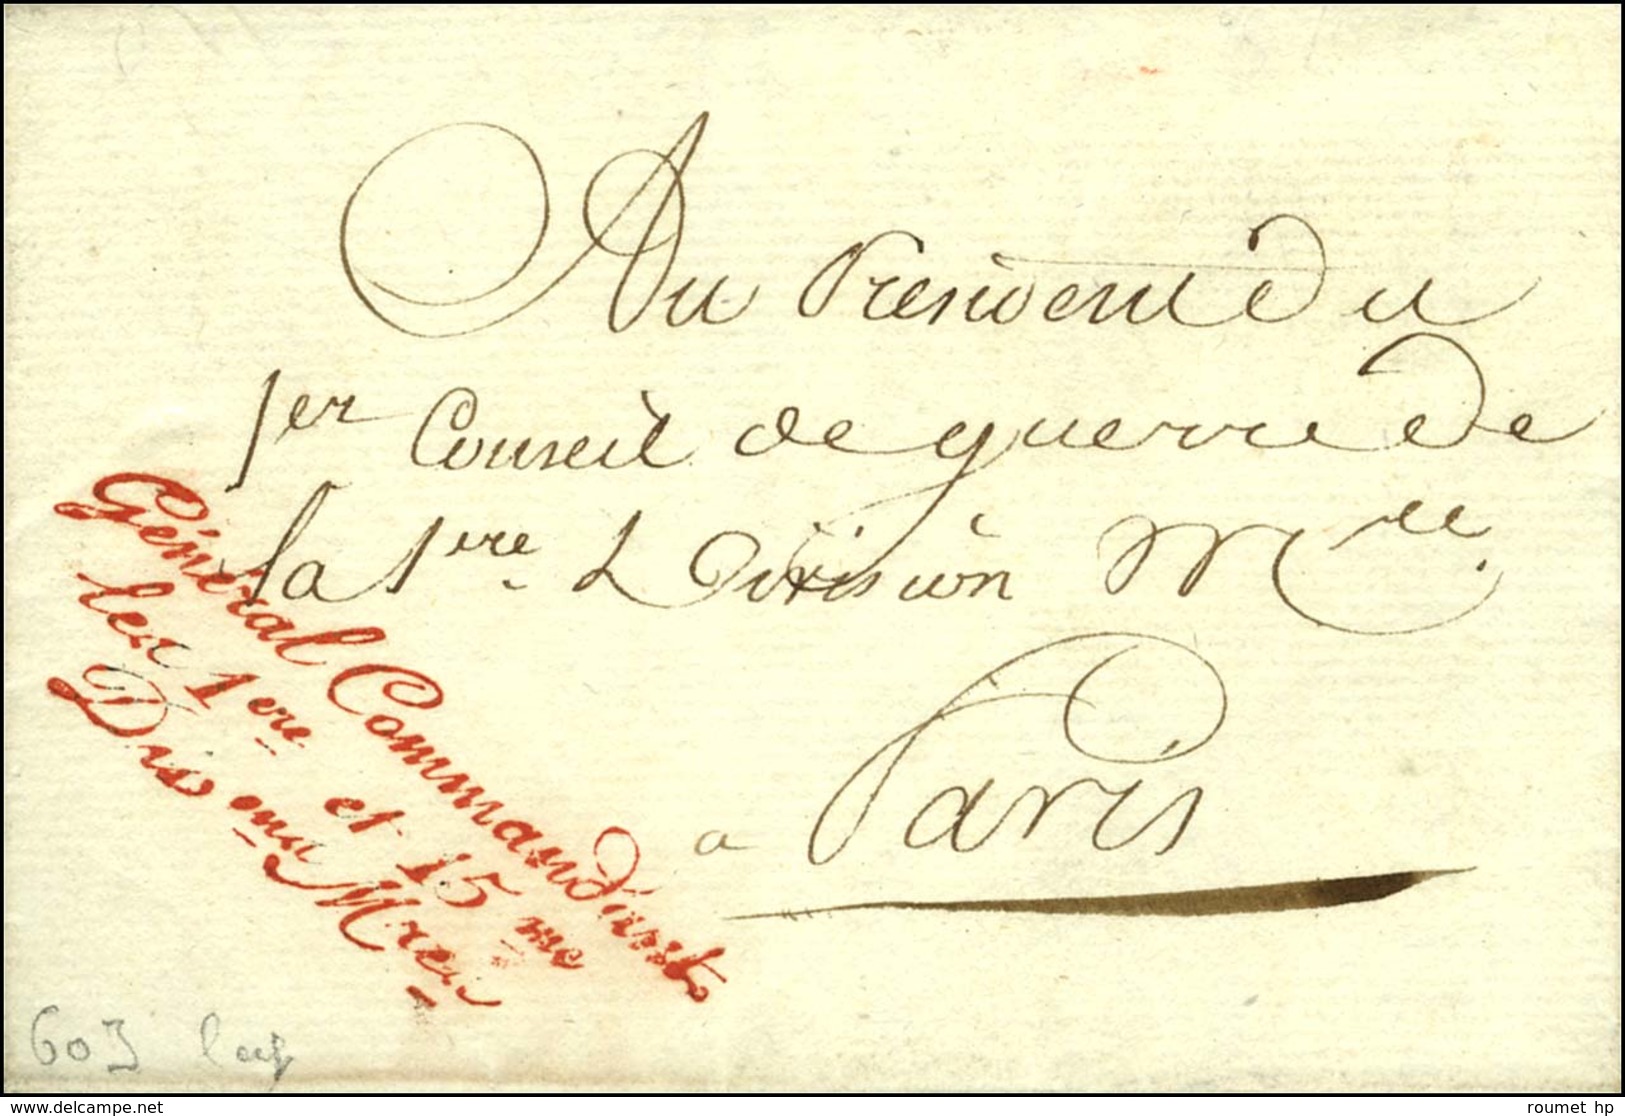 Au President du
1er Conseil de guerre de
la 1ere Division Mre
a Paris
Général Commandant
les 1ere et 15me
Divons Mres
603
roumet hp
www.delcampe.net